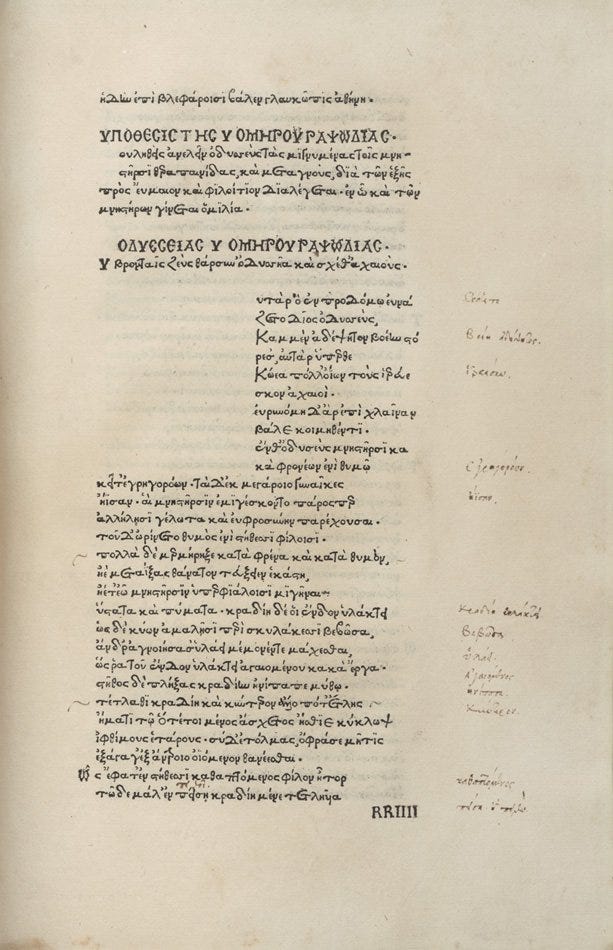 ἡδὺν ἐπὶ βλεφάροισι βάλεν γλαυκῶπις ἀθήνη.
ΥΠΟΘΕΣΙΣ ΤΗΣ Υ ΟΜΗΡΟΥ ΡΑΨΩΔΙΑΣ.
ἀνελεῖν ὀδυσσεὺς τὰς μισγυμένας τοῖς μνη-
στῆρσι θεραπαινίδας, καὶ μεταγνοὺς, διὰ τῶν ἑξῆς
πρὸς ἔυμαιον καὶ φιλοίτιον διαλέγεται. ἐν ᾧ καὶ τῶν
μνηστήρων γίνεται ὁμιλία.
ΟΔΥΣΣΕΙΑΣ Υ ΟΜΗΡΟΥ ΡΑΨΩΔΙΑΣ.
Υ βρονταῖς ζεὺς θάρσυν ὀδυσσῆα καὶ σχέθ' ἀχαιούς.
υτὰρ ὁ ἐν προδόμω ἐυνά
ζετο δῖος ὀδυσσεύς,
Καμ μὲν ἀδέψητον βοέην στό
ρεσ', αὐτὰρ ὕπερθε
Κώεα πόλλ' οἴων τοὺς ἱρεύε
σκον ἀχαιοί.
ἐυρυνόμη δ' ἄρ' ἐπὶ χλαῖναν
βάλε κοιμηθέντι.
ἔνθ' ὀδυσεὺς μνηστῆρσι κα
κὰ φρονέων ἐνὶ θυμῷ
κεῖτ' ἐγρηγορόων. ταὶ δ' ἐκ μεγάροιο γυναῖκες
ἤϊσαν. αἳ μνηστῆρσιν ἐμισγέσκοντο πάρος περ
ἀλλήλησι γέλωτα καὶ ἐυφροσύνην παρέχουσαι.
τοῦ δ' ὠρίνετο θυμὸς ἐνὶ στήθεσσι φίλοισι.
πολλὰ δὲ μερμήριξε κατὰ φρένα καὶ κατὰ θυμόν,
ἠὲ μεταΐξας θάνατον τεύξειεν ἑκάστῃ,
ἠὲ τ' ἐῷ μνηστῆρσιν ὑπερφιάλοισι μιγῆναι
ὕστατα καὶ πύματα. κραδίη δέ οἱ ἔνδον ὑλάκτει
ὡς δὲ κύων ἀμαλῇσι περὶ σκυλάκεσσι βεβῶσα,
ἄνδρ' ἀγνοιήσασ' ὑλάει μέμονέν τε μάχεσθαι,
ὥς ῥα τοῦ ἔνδον ὑλάκτει ἀγαιομένου κακὰ ἔργα.
στῆθος δὲ πλήξας κραδίην ἠνίπαπε μύθῳ.
τέτλαθι κραδίη καὶ κύντερον ἄλλο ποτ' ἔτλης
ἤματι τῷ ὅτε τοι μένος ἄσχετος ἤσθιε κύκλωψ
ἰφθίμους ἑτάρους. σὺ δ' ἐτόλμας, ὄφρα σε μῆτις
ἐξάγαγ' ἐξ ἄντροιο ὀϊόμενον θανέεσθαι.
ὣς ἔφατ' ἐν στήθεσσι καθαπτόμενος φίλον ἦτορ
τῷ δὲ μάλ' ἐν πείσῃ κραδίη μένε τετληυῖα
RRIIII